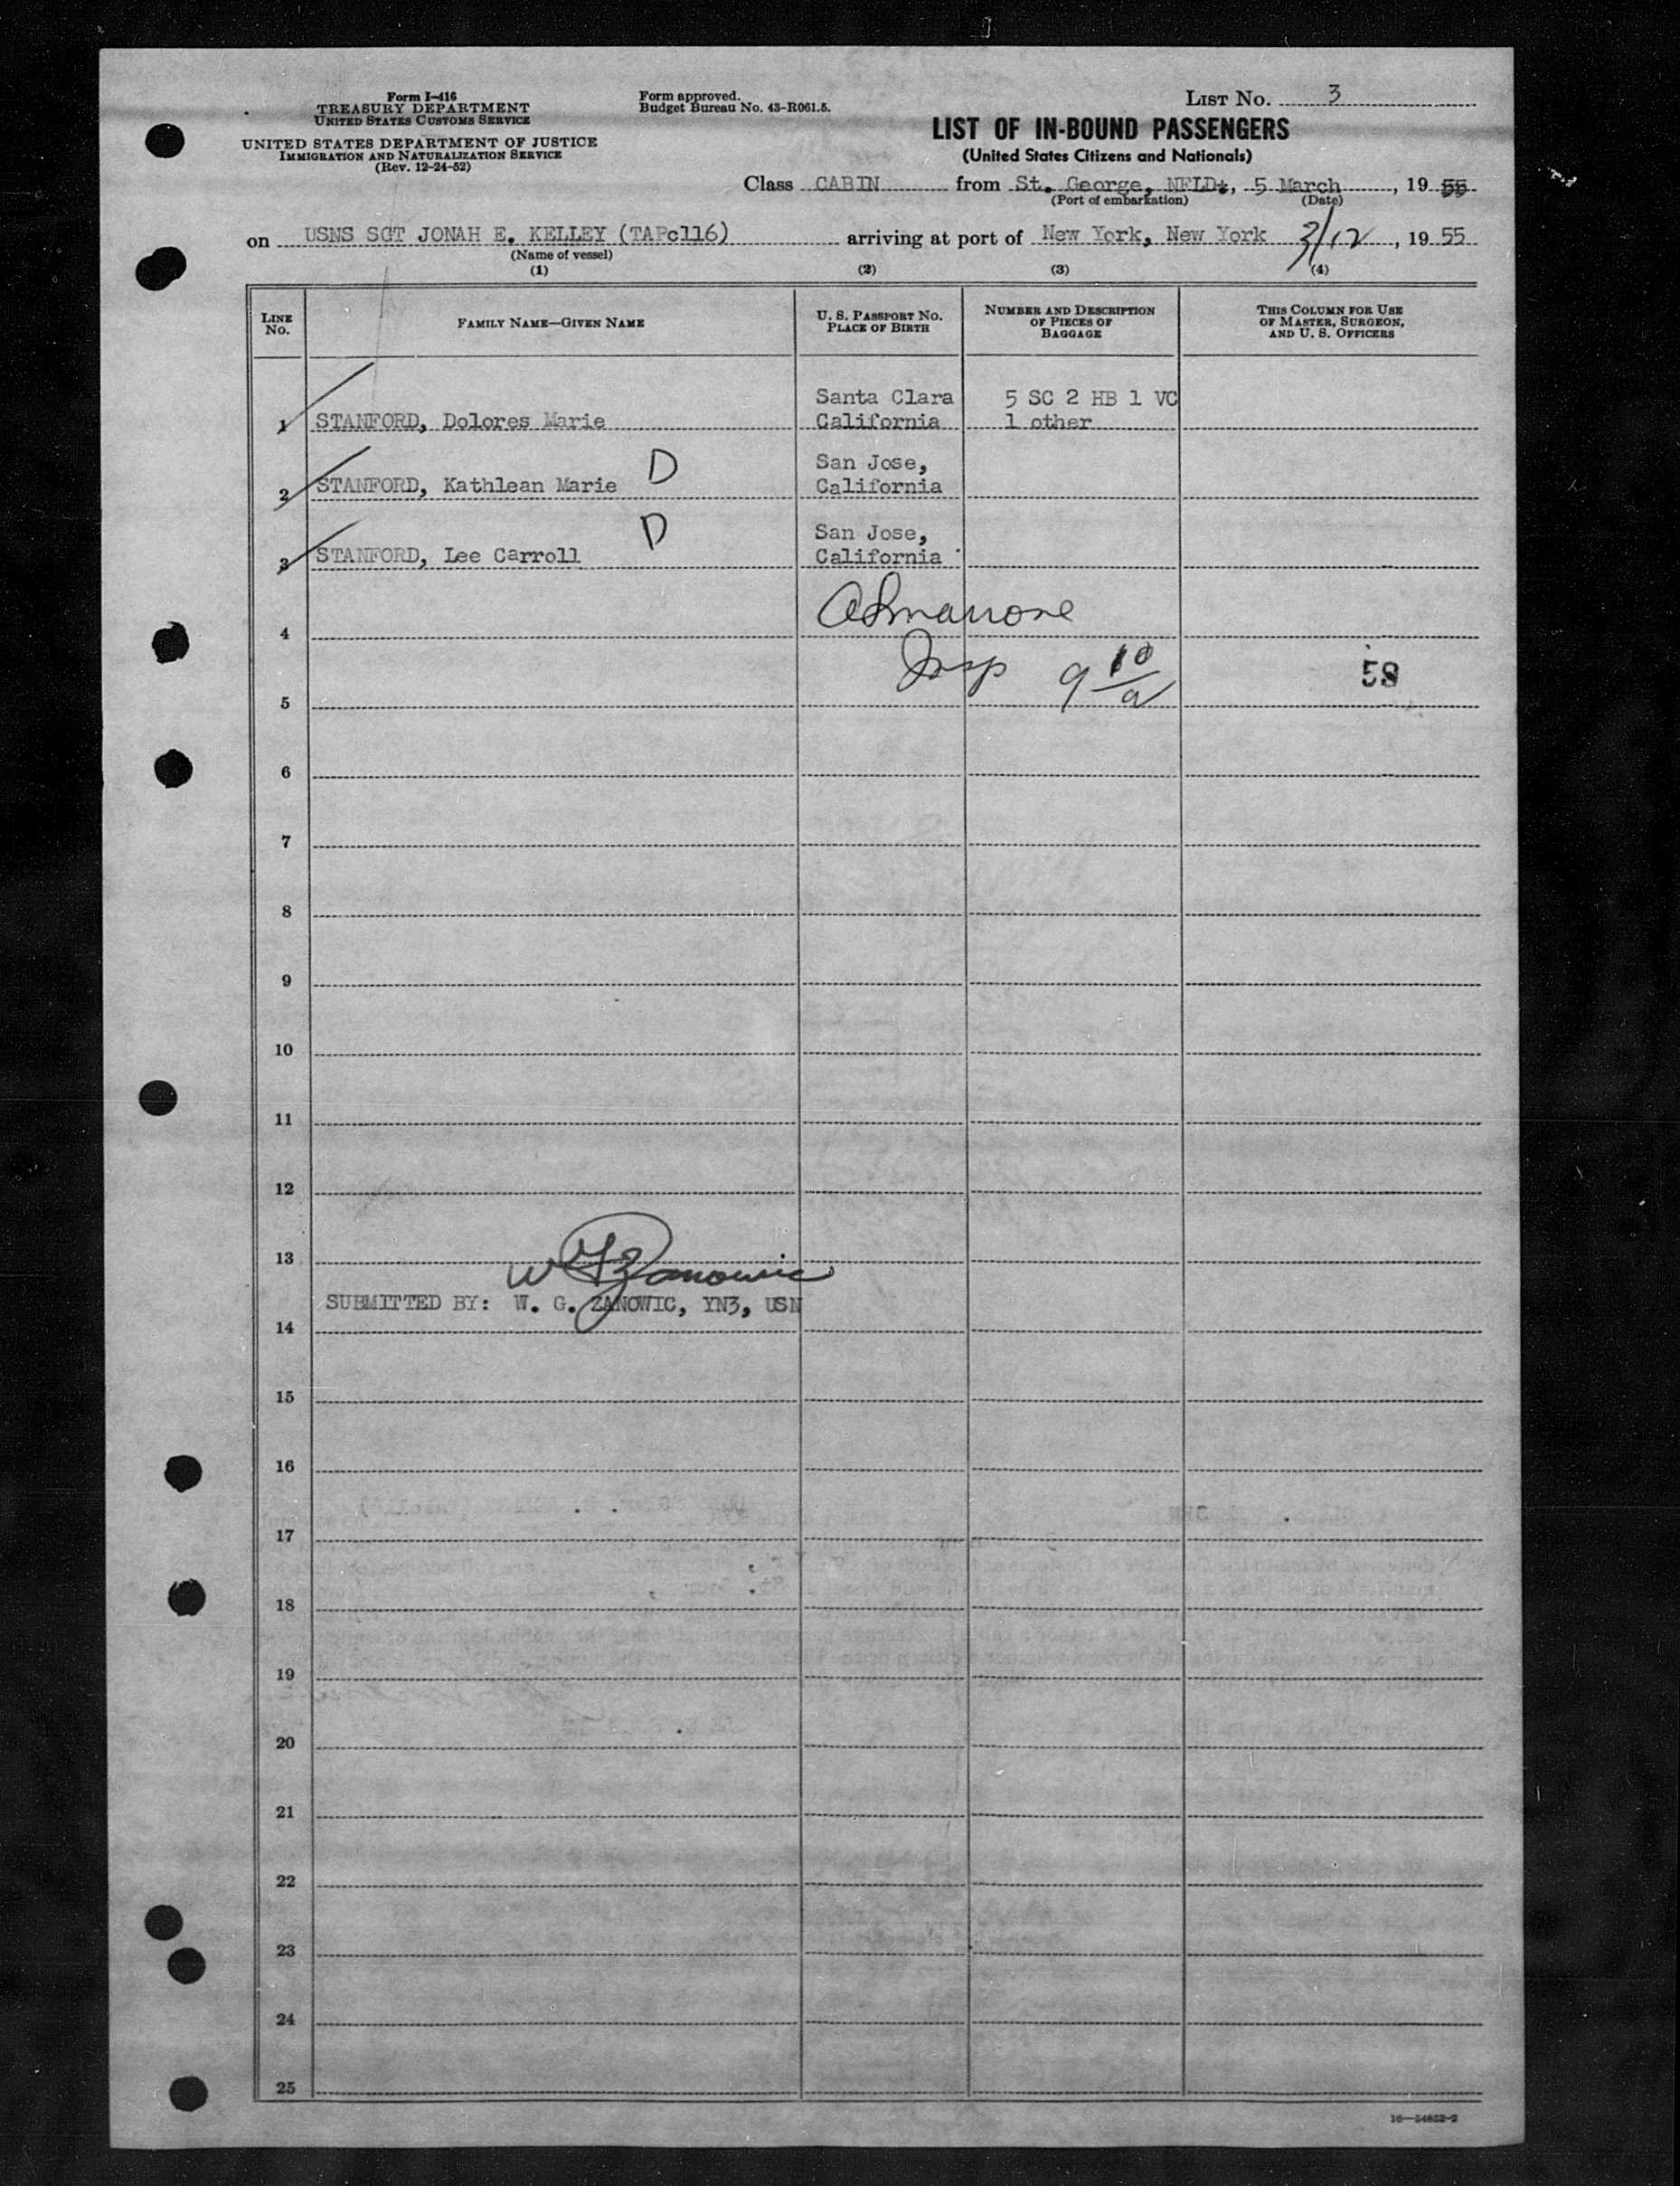 Form I-416
TREASURY DEPARTMENT
UNITED STATES CUSTOMS SERVICE
UNITED STATES DEPARTMENT OF JUSTICE
IMMIGRATION AND NATURALIZATION SERVICE
(Rev. 12-24-52)
Form approved.
Budget Bureau No. 43-R061.5.
LIST NO. 3
LIST OF IN-BOUND PASSENGERS
(United States Citizens and Nationals)
Class CABIN from St. George, NFLD., 5 March, 19 55
(Port of embarkation) (Date)
on USNS SGT JONAH E. KELLEY (TAPc116) arriving at port of New York, New York 3/12, 19 55
(Name of vessel)
(1) (2) (3) (4)
LINE NO. FAMILY NAME—GIVEN NAME U. S. PASSPORT NO. PLACE OF BIRTH NUMBER AND DESCRIPTION OF PIECES OF BAGGAGE THIS COLUMN FOR USE OF MASTER, SURGEON, AND U. S. OFFICERS
1 STANFORD, Dolores Marie Santa Clara California 5 SC 2 HB 1 VC 1 other
2 STANFORD, Kathlean Marie D San Jose, California
3 STANFORD, Lee Carroll D San Jose, California
4
Insp 9 10/a 58
5
6
7
8
9
10
11
12
13 W G Zanowic
SUBMITTED BY: W. G. ZANOWIC, YN3, USN
14
15
16
17
18
19
20
21
22
23
24
25
16—54652-2